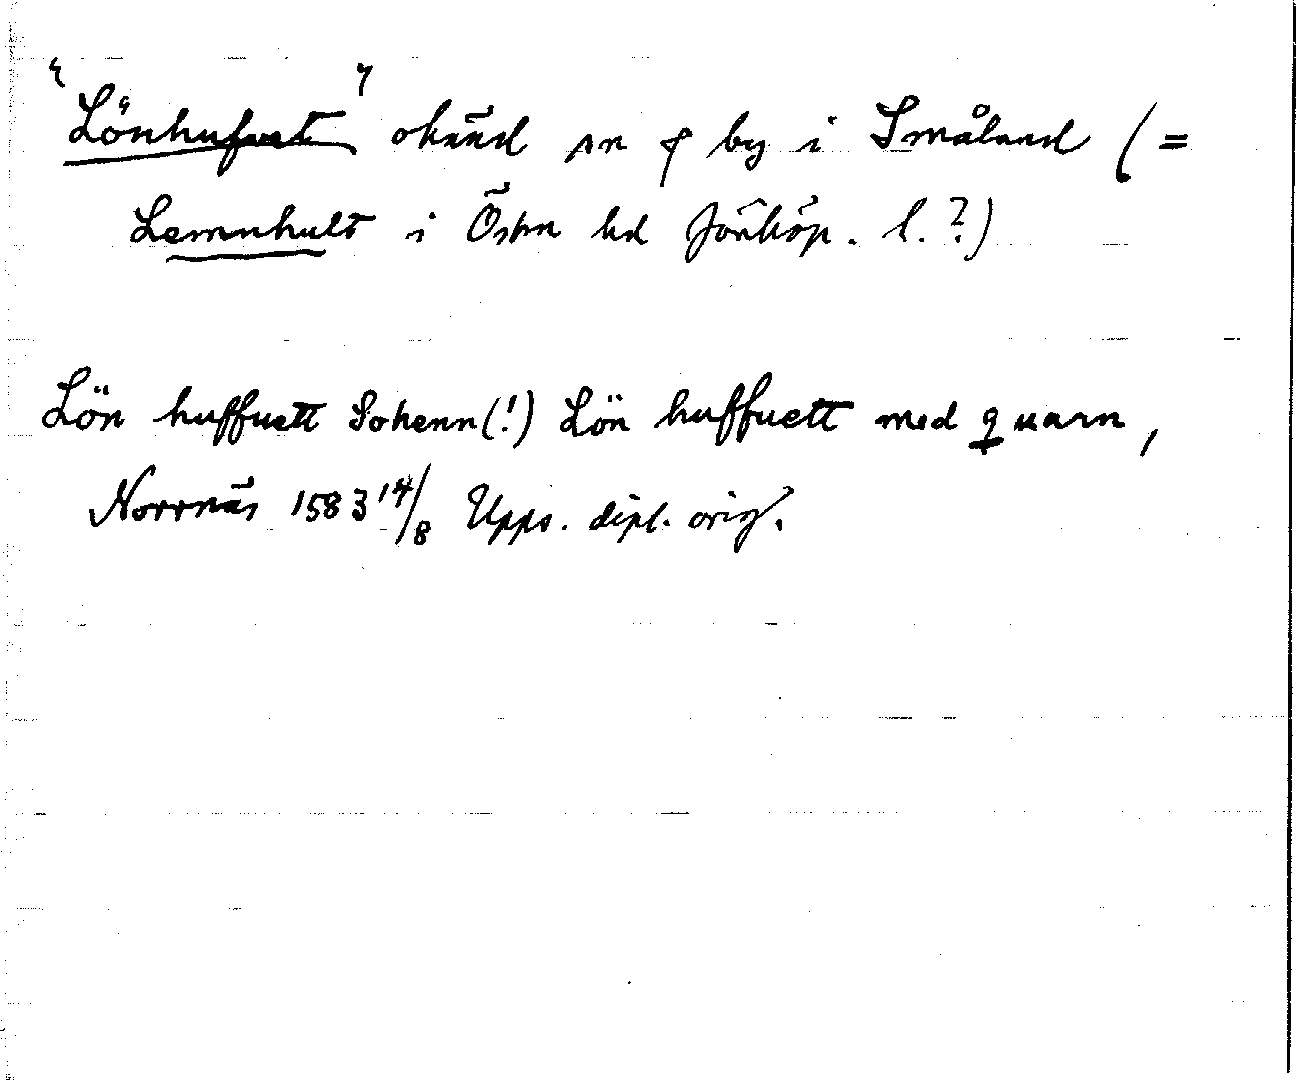 "Lönhufvet" okänd sn o by i Småland (=
Lemnhult i Östra hd Jönköp. l.?)
Lön huffuett Sokenn(!) Lön huffuett med quarn,
Norrnäs 1583 14/8 Upps. dipl. orig.